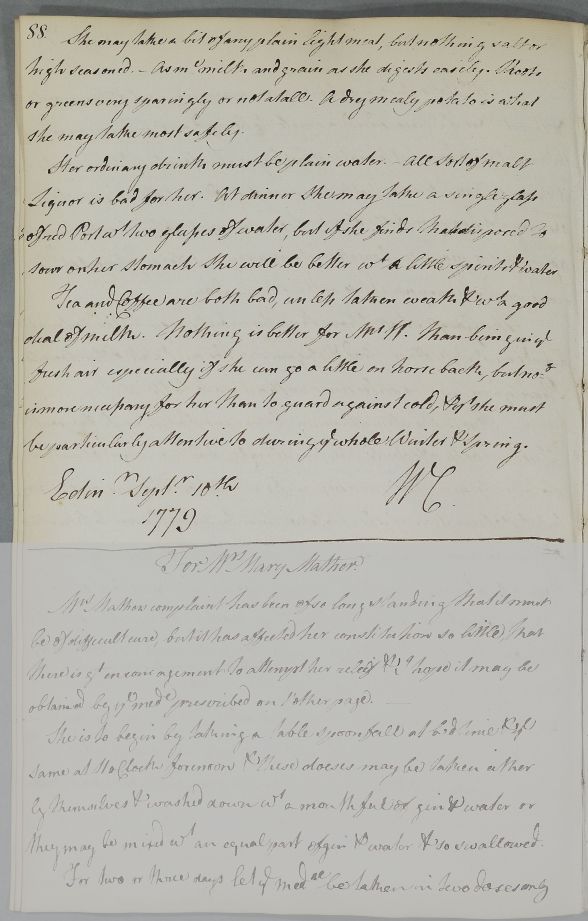 88
She may take a bit of any plain light meat, but nothing salt or
high seasoned. - As mh milk and grain as she digests easily. Roots
or greens very sparingly or not at all. A dry mealy potato is what
she may take most safely.
Her ordinary drink must be plain water. - All sort of malt
Liquor is bad for her. At dinner she may take a single glass
of red Port wt two glasses of water, but if she finds that disposed to
sour on her stomach she will be better wt a little spirits & water
Tea and Coffee are both bad, unless taken weak & wt a good
deal of milk. Nothing is better for Mrs H. than being in ye
fresh air especially if she can go a little on horse back, but nog
is more necessary for her than to guard against cold, & ys she must
be particularly attentive to during ye whole Winter & Spring.
Edinr Septr 10th WC.
1779
For Mrs Mary Mather.
Mrs Mathers complaint has been of so long standing that it must
be of difficult cure, but it has affected her constitution so little that
there is gt encouragement to attempt her relief & I hope it may be
obtained by ye mede prescribed on t'other page. -
She is to begin by taking a table spoonfull at bed time & ye
same at 11 oClock forenoon & these doeses may be taken either
by themselves & washed down wt a mouthful of gin & water or
they may be mixed wt an equal part of gin & water & so swallowed.
For two or three days let ye medne be taken in two doses only